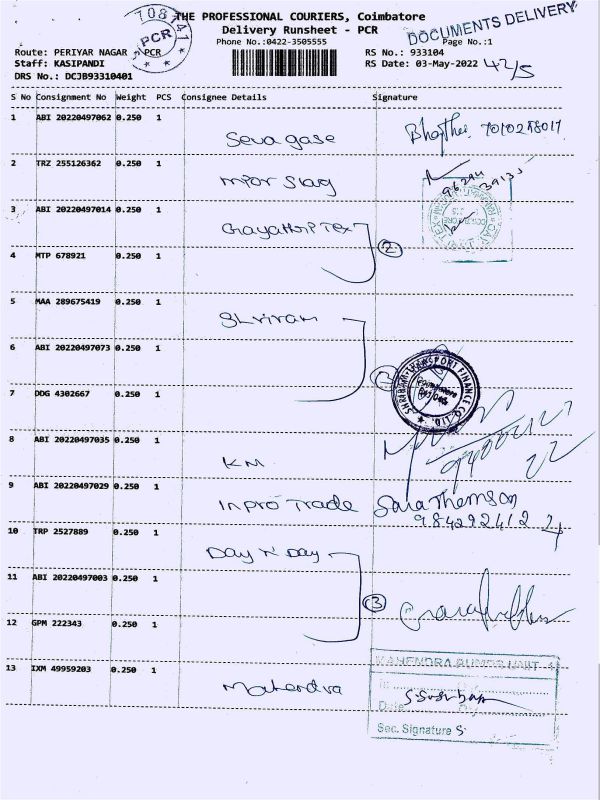 708741
PCR
THE PROFESSIONAL COURIERS, Coimbatore
Delivery Runsheet - PCR
Phone No.:0422-3505555
DOCUMENTS DELIVERY
Page No.:1
Route: PERIYAR NAGAR - PCR
RS No.: 933104
Staff: KASIPANDI
RS Date: 03-May-2022
42/5
DRS No.: DCJB93310401
S No Consignment No Weight PCS Consignee Details Signature
1 ABI 20220497062 0.250 1
Seva gase
2 TRZ 255126362 0.250 1
96294
39135
3 ABI 20220497014 0.250 1
Gayathri Tex
4 MTP 678921 0.250 1
2
5 MAA 289675419 0.250 1
Shriram
6 ABI 20220497073 0.250 1
SHRIRAM TRANSPORT FINANCE CO. LTD.
Coimbatore
7 DDG 4302667 0.250 1
8 ABI 20220497035 0.250 1
KM
22
9 ABI 20220497029 0.250 1
Inpro Trade
10 TRP 2527889 0.250 1
Day n Day
11 ABI 20220497003 0.250 1
3
12 GPM 222343 0.250 1
13 IXM 49959203 0.250 1
Mahendra
Date
Sec. Signature